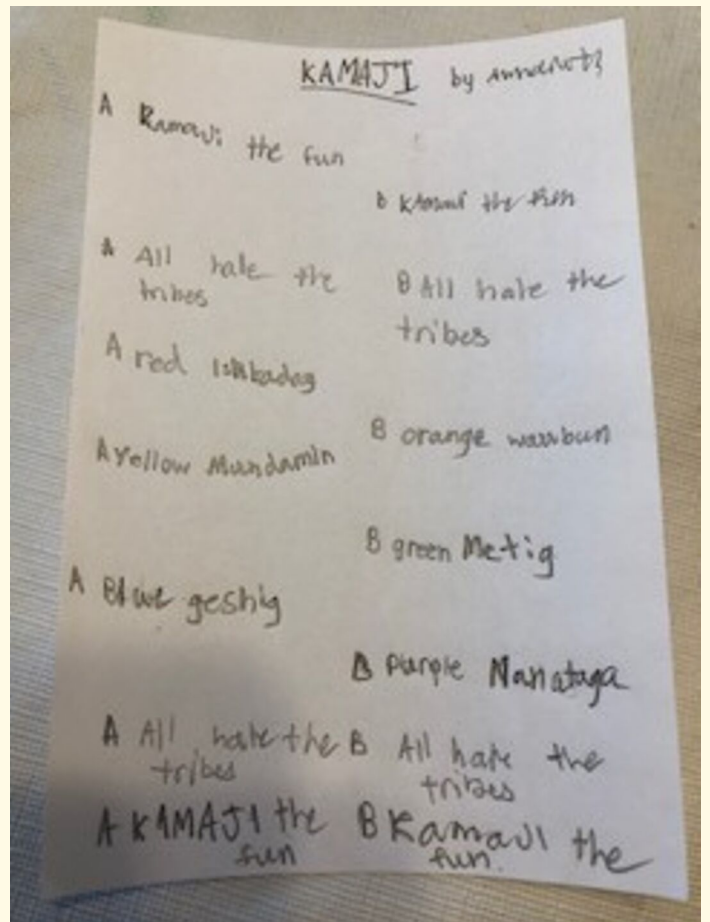 KAMAJI by
A Kamaji the fun
B KAmaji the fun
A All hale the
tribes
B All hale the
tribes
A red Ishkadag
B orange wawbun
A yellow Mundamin
B green Metig
A Blue geshig
B Purple Nanataga
A All hale the
tribes
B All hale the
tribes
A KAMAJI the
fun
B Kamaji the
fun.